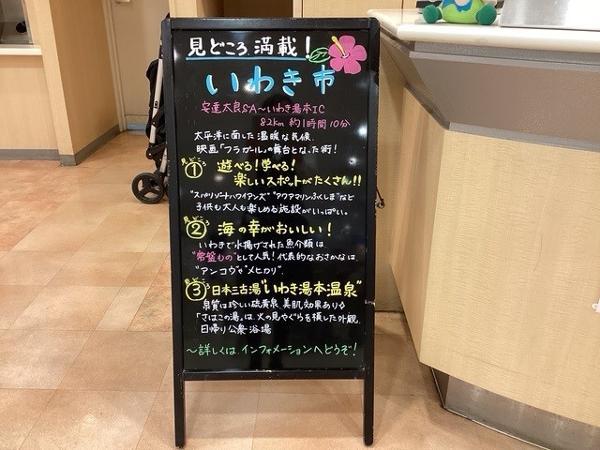 見どころ満載!
いわき市
安達太良SA～いわき湯本IC
82km 約1時間10分
太平洋に面した温暖な気候。
映画「フラガール」の舞台となった街!
見どころ
① 遊べる!学べる!
楽しいスポットがたくさん!!
"スパリゾートハワイアンズ" "アクアマリンふくしま"など
子供も大人も楽しめる施設がいっぱい。
見どころ
② 海の幸がおいしい!
いわきで水揚げされた魚介類は
"常磐もの"として人気!代表的なおさかなは
"アンコウ"や"メヒカリ"
見どころ
③ 日本三古湯"いわき湯本温泉"
泉質は珍しい硫黄泉 美肌効果あり◇
「さはこの湯」は、火の見やぐらを模した外観。
日帰り公衆浴場
～詳しくは インフォメーションへどうぞ!